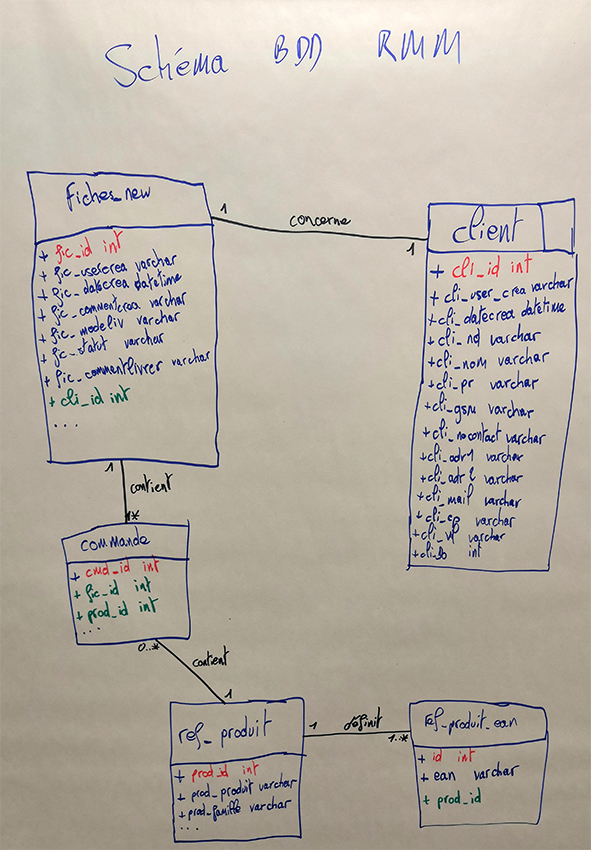 Schéma BDD RMM
fiches_new
+ fic_id int
+ fic_usercrea varchar
+ fic_datecrea datetime
+ fic_commentcrea varchar
+ fic_modeliv varchar
+ fic_statut varchar
+ fic_commentlivrer varchar
+ cli_id int
...
1 concerne 1
client
+ cli_id int
+ cli_user_crea varchar
+ cli_datecrea datetime
+ cli_nd varchar
+ cli_nom varchar
+ cli_pr varchar
+ cli_gsm varchar
+ cli_nocontact varchar
+ cli_adr1 varchar
+ cli_adr2 varchar
+ cli_mail varchar
+ cli_cp varchar
+ varchar
+ int
1
contient
1*
commande
+ cmd_id int
+ fic_id int
+ prod_id int
...
0..*
contient
1
ref_produit
+ prod_id int
+ prod_produit varchar
+ prod_famille varchar
...
1 définit 1..*
ref_produit_ean
+ id int
+ ean varchar
+ prod_id